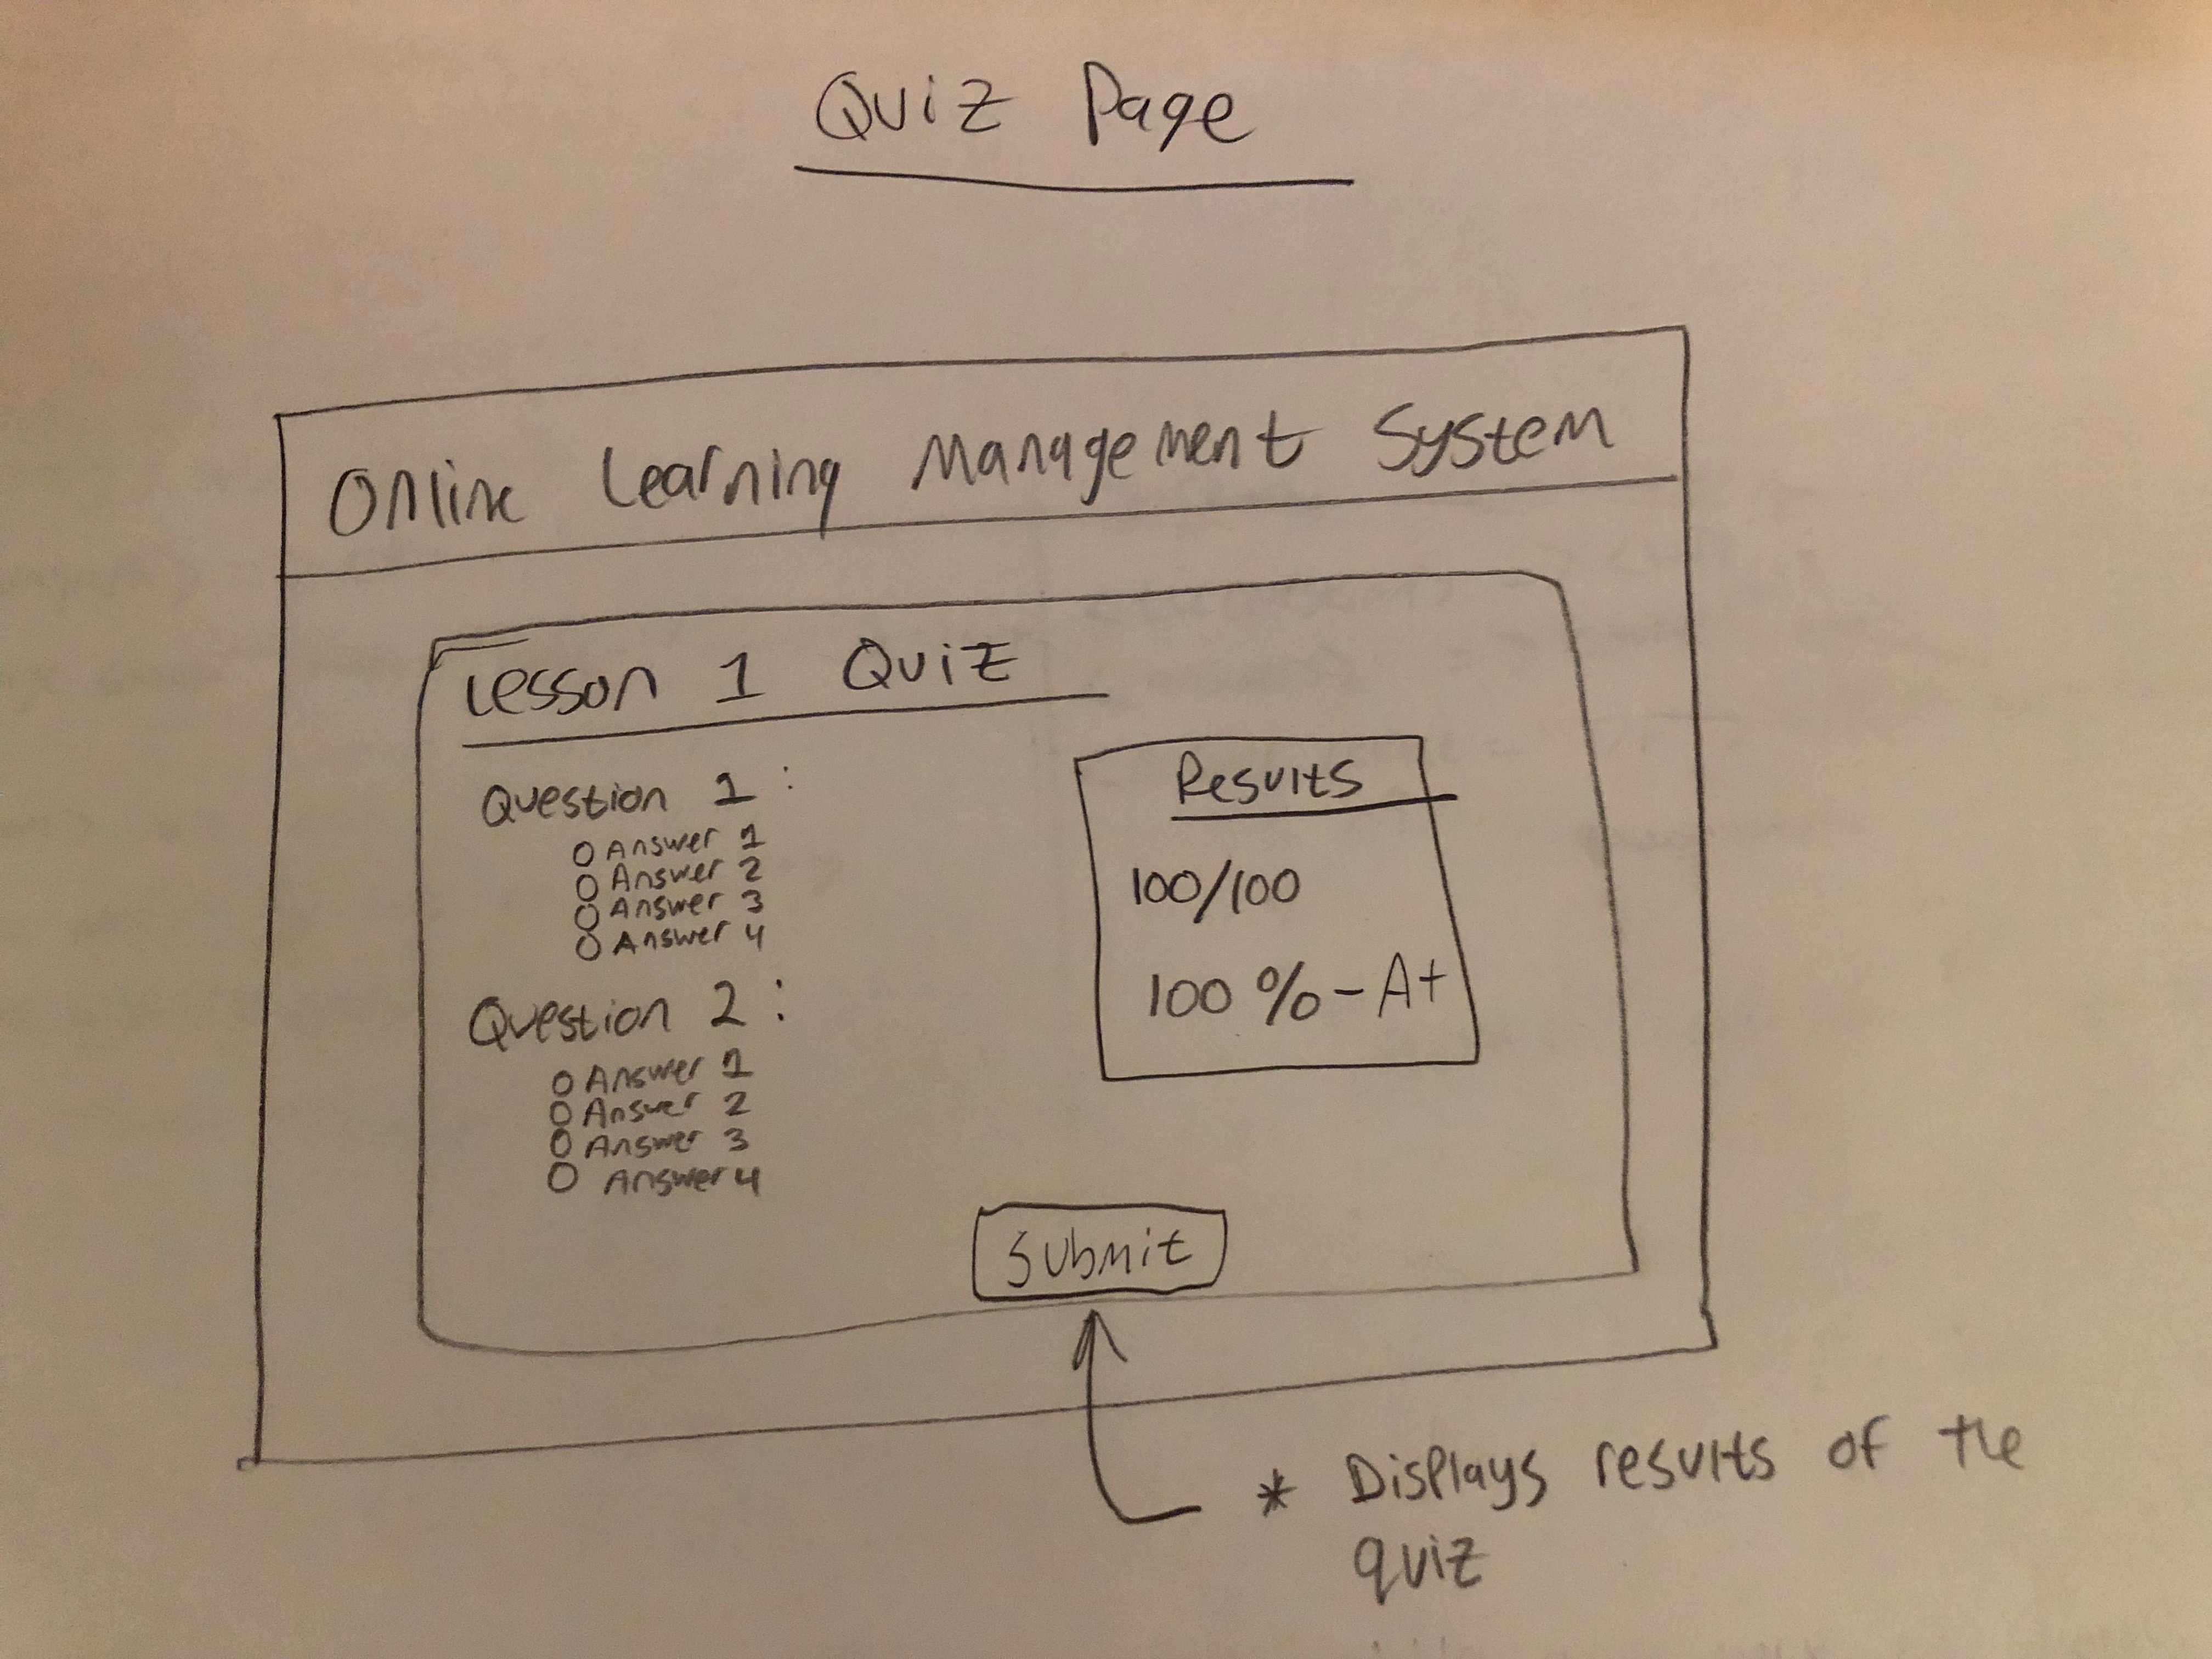 Quiz Page
Online Learning Management System
Lesson 1 Quiz
Question 1:
Answer 1
Answer 2
Answer 3
Answer 4
Question 2:
Answer 1
Answer 2
Answer 3
Answer 4
Results
100/100
100%-A+
Submit
* Displays results of the
quiz